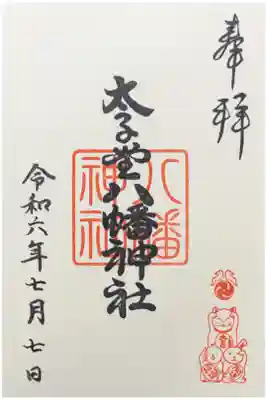 奉拝
太子堂八幡神社
八幡
神社
令和六年七月七日